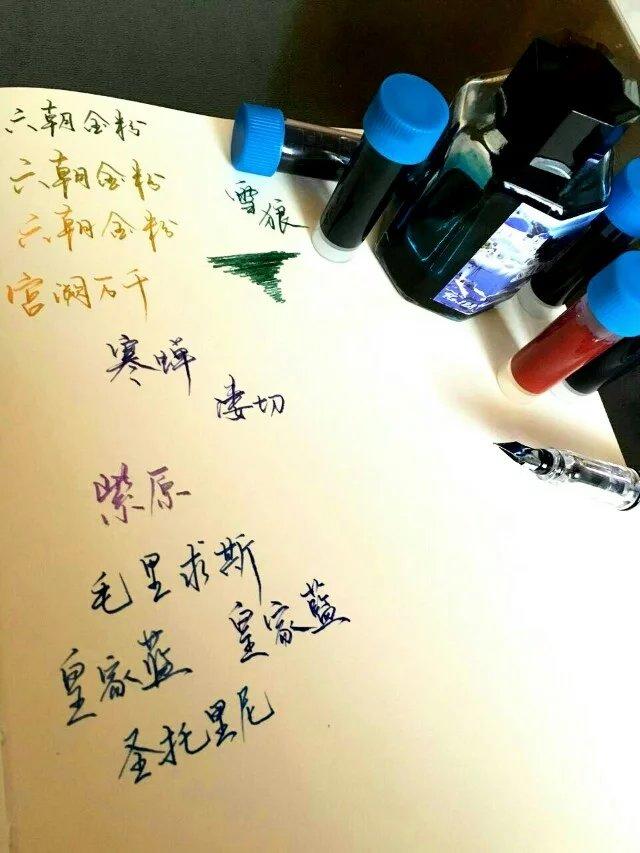 六朝金粉
六朝金粉
六朝金粉
宫阙万千
雪狼
寒蝉
凄切
紫原
毛里求斯
皇家藍
皇家藍
圣托里尼